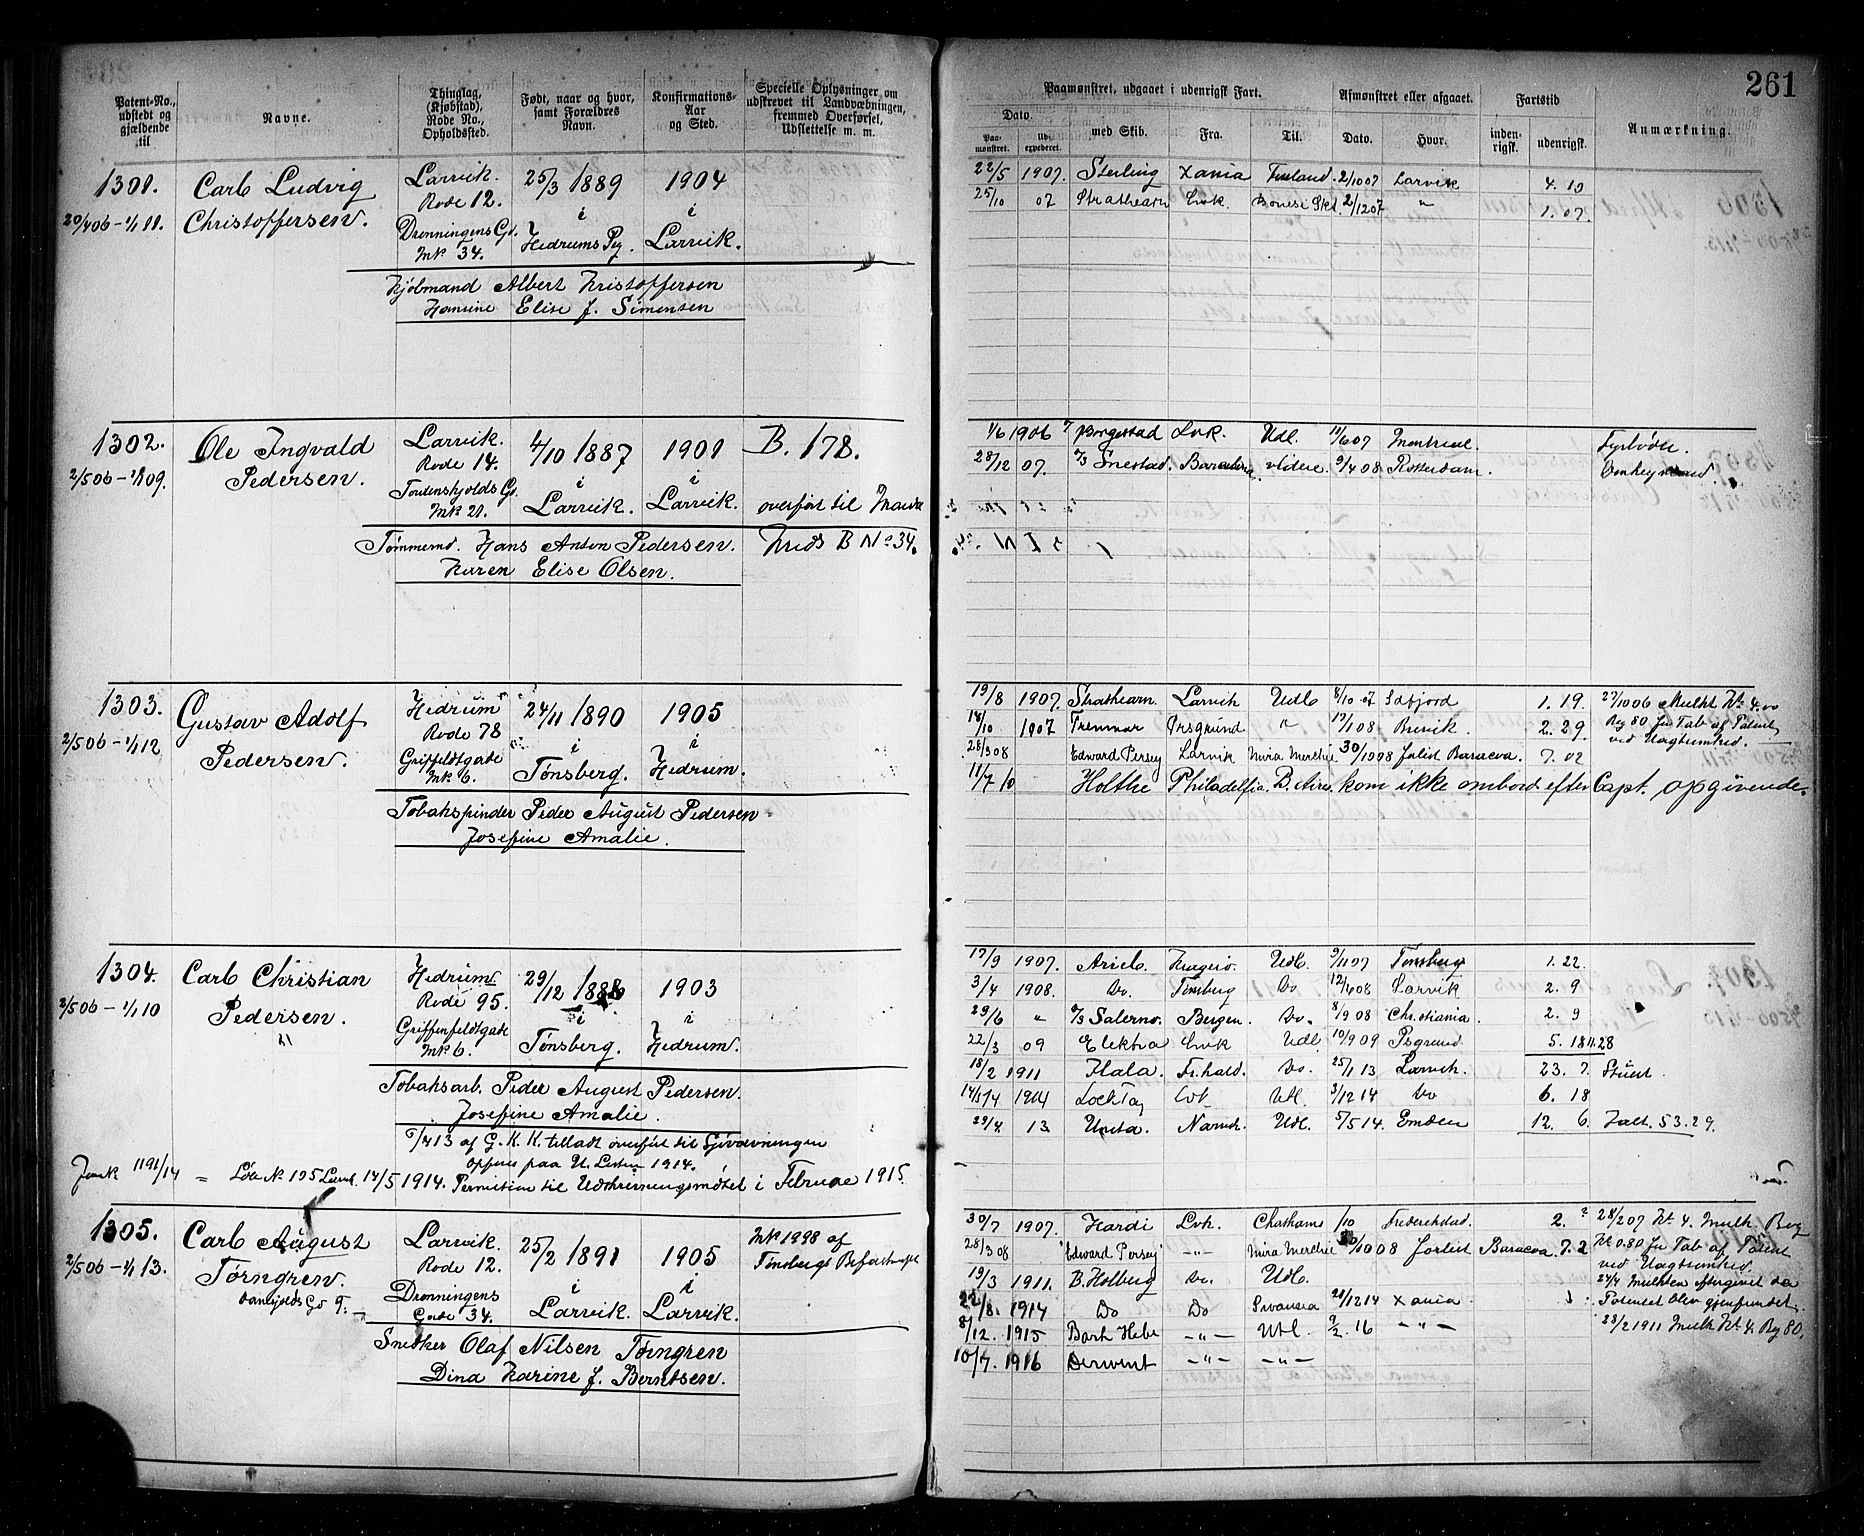 261
Patent-No., udstedt og gjældende til
Navne.
Thinglag, (Kjøbstad), Rode No., Opholdssted.
Født, naar og hvor, samt Forældres Navn.
Konfirmations-Aar og Sted.
Specielle Oplysninger om udskrevet til Landværnet, fremmed Overførsel, Udslettelse m. m.
Paamønstret, udgaaet i udenrigsk Fart.
Afmønstret eller afgaaet.
Fartstid
Anmærkning.
Dato.
Paamønstret. udexpederet. med Skib. Fra. Til. Dato. Hvor. indenrigsk. udenrigsk.
1301.
20/4 06 - 1/1 11.
Carl Ludvig
Christoffersen.
Larvik.
Rode 12.
Dronningens Gd.
Mk 34.
25/3 1889
i
Hedrums Pg.
1904
i
Larvik.
Kjøbmand Albert Kristoffersen
Hansine Elise f. Simonsen
22/5 1907. Sterling Xania Finland. 2/10 07 Larvik 4. 10
25/10 07 Strathearn Lvk. 2/12 07 " 1. 07.
1302.
2/5 06 - 1/1 09.
Ole Ingvald
Pedersen.
Larvik.
Rode 14.
Tordenskjolds Gd.
Mk 21.
4/10 1887
i
Larvik.
1901
i
Larvik.
B. 178.
overført til
B No 34.
Tømmermd. Hans Anton Pedersen.
Karen Elise Olsen.
1/6 1906 Borgestad Lvk. Udl. 11/6 07 Montreal Fyrbøder.
28/12 07. Snestad. videre. 9/4 08 Rotterdam.
1303.
2/5 06 - 1/1 12
Gustav Adolf
Pedersen.
Hedrum
Rode 78
Griffelfdtgade
Mk 6.
24/11 1890
i
Tønsberg.
1905
i
Hedrum.
Tobakspinder Peder August Pedersen
Josefine Amalie.
19/8 1907. Strathearn. Larvik Udl 8/10 07 1. 19.
14/10 1907 Prsgrund " 17/1 08 Brevik. 2. 29.
28/3 08 Edward Persey Larvik Mira Merchie 30/10 08 forlist Baracoa. 7. 02
11/7 10 Holthe Philadelfia. B. Aires. kom ikke ombord efter Capt. opgivende.
27/10 06 Mulkt Kr. 4.00
Bog 80 for Tab af Patent
ved Uagtsomhed.
1304.
2/5 06 - 1/1 10
Carl Christian
Pedersen.
Hedrum
Rode 95.
Griffenfeldtgade
Mk 6.
29/12 1888
i
Tønsberg.
1903
i
Hedrum.
Tobaksarb. Peder August Pedersen.
Josefine Amalie.
/4 13 af G. K. K. tilladt overført til Sjøvævningen
opføres paa U. Listen 1914.
Jnrnk 1191/14 = Løbe No 195 Larvk. 14/5 1914. Permission til Udskrivningsmødet i Februar 1915.
17/9 1907. Ariel. Kragerø. Udl. 9/11 07 Tønsberg 1. 22.
3/4 1908. Do. Tønsberg Do 12/4 08 Larvik 2. 9
29/6 " Salerno. Bergen. Do. 8/9 08 Christiania. 2. 9
22/3 09 Elektra Lvk Udl 10/9 09 Psgrund 5. 18
18/2 1911 Flala. Fr.hald. Do. 25/1 13 Larvik. 23. 7.
Lock Tay Lvk. Utl. 3/12 14 Do 6. 18
29/4 13. Unita. Narvik. Udl. 5/5 14 Emden 12. 6 Jalt. 53.29.
1305.
2/5 06 - 1/1 13.
Carl August
Torngren.
Larvik.
Rode 12.
Dronningens
Gade 34.
25/2 1891
i
Larvik.
1905
i
Larvik.
Mk 1998 af
Tønsbergs
Snedker Olaf Nilsen Torngren
Dina Karine f. Berntsen.
30/7 1907. Hardi Lvk. Chatham /10 Frederikstad. 2. ?
28/3 08 "Edward Persey" -"- Mira Merchie 30/10 08 forlist Baracoa. 7. 2
19/3 1911. B. Holberg Do. Udl.
22/8. 1914 Do Do Swansea 21/12 14 Xania.
8/12. 1915 Bark Hebe -"- Utl. 9/2. 16 -"-
10/7. 1916 Derwent -"- -"-
28/2 07 Kr. 4. Mulk. Bog
No 80 for Tab af Patent
ved Uagtsomhed
24/4 Mulkten eftergivet da
Patentet blev gjenfundet.
23/2 1911 Mulk Kr 4. Bog 80.